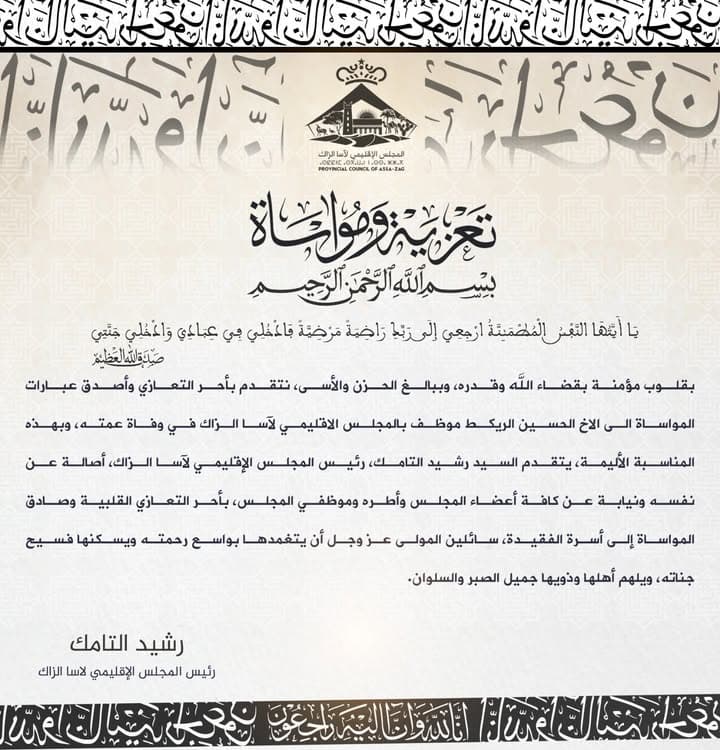 المجلس الإقليمي لآسا الزاك
PROVINCIAL COUNCIL OF ASSA-ZAG
تعزية ومواساة
بسم الله الرحمن الرحيم
يَا أَيَّتُهَا النَّفْسُ الْمُطْمَئِنَّةُ ارْجِعِي إِلَىٰ رَبِّكِ رَاضِيَةً مَرْضِيَّةً فَادْخُلِي فِي عِبَادِي وَادْخُلِي جَنَّتِي
صدق الله العظيم
بقلوب مؤمنة بقضاء الله وقدره، وببالغ الحزن والأسى، نتقدم بأحر التعازي وأصدق عبارات
المواساة الى الاخ الحسين الريكط موظف بالمجلس الاقليمي لآسا الزاك في وفاة عمته، وبهذه
المناسبة الأليمة، يتقدم السيد رشيد التامك، رئيس المجلس الإقليمي لآسا الزاك، أصالة عن
نفسه ونيابة عن كافة أعضاء المجلس وأطره وموظفي المجلس، بأحر التعازي القلبية وصادق
المواساة إلى أسرة الفقيدة، سائلين المولى عز وجل أن يتغمدها بواسع رحمته ويسكنها فسيح
جناته، ويلهم أهلها وذويها جميل الصبر والسلوان.
رشيد التامك
رئيس المجلس الإقليمي لاسا الزاك
إنا لله وإنا إليه راجعون